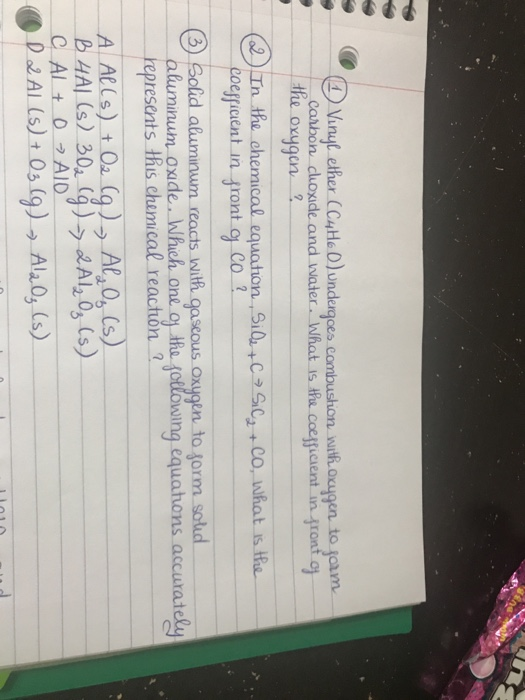 ① Vinyl ether (C4H6O) undergoes combustion with oxygen to form
carbon dioxide and water. What is the coefficient in front of
the oxygen ?
② In the chemical equation, SiO2 + C → SiC2 + CO, what is the
coefficient in front of CO ?
③ Solid aluminum reacts with gaseous oxygen to form solid
aluminum oxide. Which one of the following equations accurately
represents this chemical reaction ?
A Al(s) + O2 (g) → Al2O3 (s)
B 4Al (s) 3O2 (g) → 2Al2O3 (s)
C Al + O → AlO
D 2Al (s) + O3 (g) → Al2O3 (s)